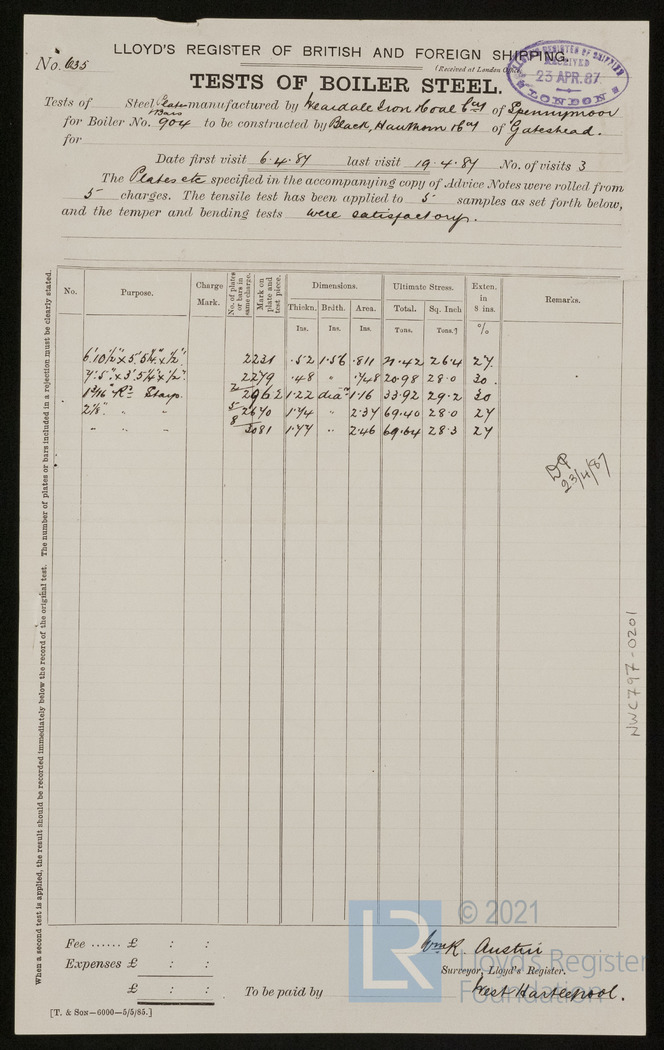 LLOYD'S REGISTER OF BRITISH AND FOREIGN SHIPPING.
No. 635
(Received at London Office
LLOYD'S REGISTER OF SHIPPING
RECEIVED
23 APR. 87
LONDON
TESTS OF BOILER STEEL.
Tests of Steel Plates & Bars manufactured by Weardale Iron & Coal Coy of Spennymoor
for Boiler No. 904 to be constructed by Black, Hawthorn & Coy of Gateshead.
for
Date first visit 6.4.87 last visit 19.4.87 No. of visits 3
The Plates etc specified in the accompanying copy of Advice Notes were rolled from
5 charges. The tensile test has been applied to 5 samples as set forth below,
and the temper and bending tests were satisfactory.
When a second test is applied, the result should be recorded immediately below the record of the original test. The number of plates or bars included in a rejection must be clearly stated.
No. Purpose. Charge Mark. No. of plates or bars in same charge. Mark on plate and test piece. Dimensions. Ultimate Stress. Exten. in 8 ins. Remarks.
Thickn. Brdth. Area. Total. Sq. Inch
Ins. Ins. Ins. Tons. Tons. %
6'.10 1/2" x 5'.5 1/4" x 1/2" 2231 .52 1.56 .811 21.42 26.4 27.
7'.5" x 3'.5 1/4" x 1/2" 2279 .48 " .748 20.98 28.0 30.
1 3/16" Rd Stays. 2 2962 1.22 diar 1.16 33.92 29.2 30
2 1/8" " " 5 2670 1.74 " 2.37 69.40 28.0 27
" " " 8 3081 1.77 " 2.46 69.64 28.3 27
DP
23/4/87
NWC797-0201
Fee ...... £ : :
Expenses £ : :
£ : :
To be paid by
Wm R. Austin
Surveyor, Lloyd's Register.
West Hartlepool.
[T. & Son—6000—5/5/85.]
LR © 2021
Lloyd's Register
Foundation